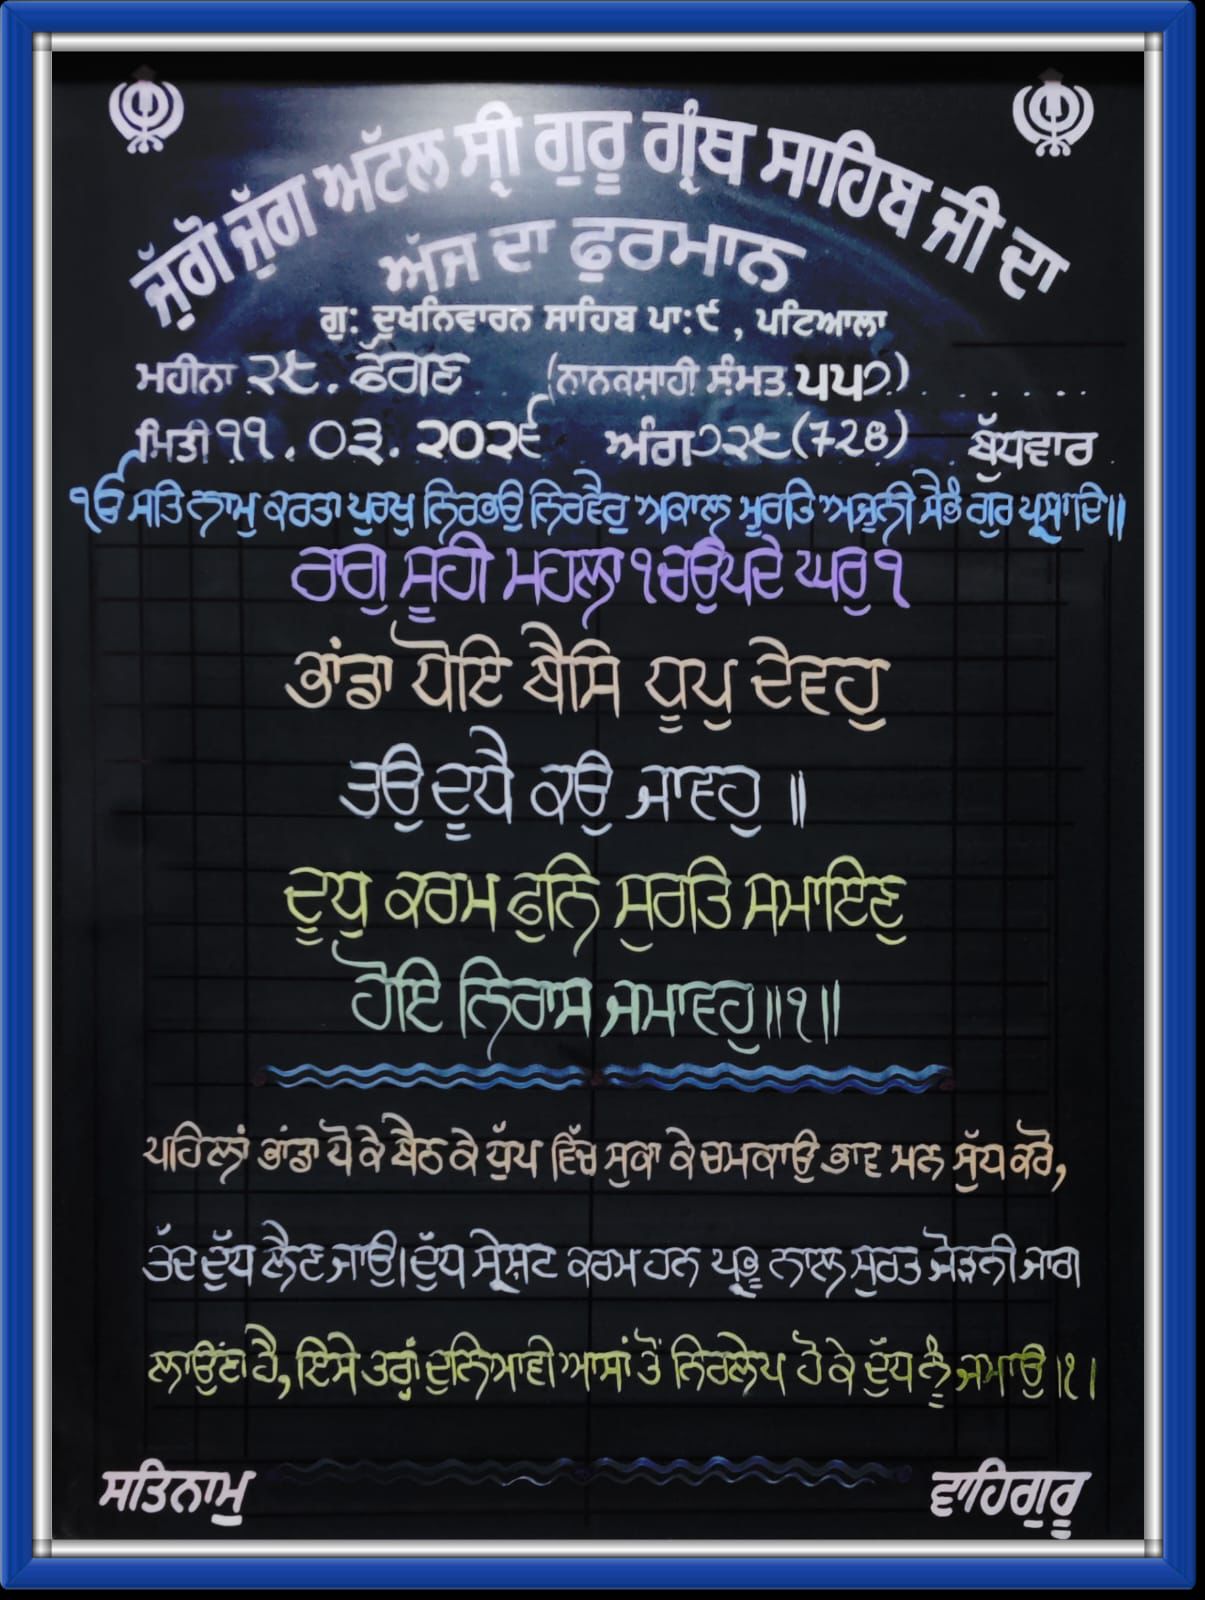 ਜੁੱਗੋ ਜੁੱਗ ਅਟੱਲ ਸ੍ਰੀ ਗੁਰੂ ਗ੍ਰੰਥ ਸਾਹਿਬ ਜੀ ਦਾ
ਅੱਜ ਦਾ ਫੁਰਮਾਨ
ਗੁ: ਦੁਖਨਿਵਾਰਨ ਸਾਹਿਬ ਪਾ:੯ , ਪਟਿਆਲਾ
ਮਹੀਨਾ ੨੮. ਫੱਗਣ (ਨਾਨਕਸ਼ਾਹੀ ਸੰਮਤ ੫੫੭)
ਮਿਤੀ 11.03.੨੦੨੬ ਅੰਗ ੭੨੮ (728) ਬੁੱਧਵਾਰ
ੴ ਸਤਿ ਨਾਮੁ ਕਰਤਾ ਪੁਰਖੁ ਨਿਰਭਉ ਨਿਰਵੈਰੁ ਅਕਾਲ ਮੂਰਤਿ ਅਜੂਨੀ ਸੈਭੰ ਗੁਰ ਪ੍ਰਸਾਦਿ॥
ਰਾਗੁ ਸੂਹੀ ਮਹਲਾ ੧ ਚਉਪਦੇ ਘਰੁ ੧
ਭਾਂਡਾ ਧੋਇ ਬੈਸਿ ਧੂਪੁ ਦੇਵਹੁ
ਤਉ ਦੂਧੈ ਕਉ ਜਾਵਹੁ ॥
ਦੂਧੁ ਕਰਮ ਫੁਨਿ ਸੁਰਤਿ ਸਮਾਇਣੁ
ਹੋਇ ਨਿਰਾਸ ਜਮਾਵਹੁ॥੧॥
ਪਹਿਲਾਂ ਭਾਂਡਾ ਧੋ ਕੇ ਬੈਠ ਕੇ ਧੁੱਪ ਵਿੱਚ ਸੁਕਾ ਕੇ ਚਮਕਾਉ ਭਾਵ ਮਨ ਸੁੱਧ ਕਰੋ,
ਤੱਦ ਦੁੱਧ ਲੈਣ ਜਾਉ। ਦੁੱਧ ਸ੍ਰੇਸ਼ਟ ਕਰਮ ਹਨ ਪ੍ਰਭੂ ਨਾਲ ਸੁਰਤ ਜੋੜਨੀ ਜਾਗ
ਲਾਉਣਾ ਹੈ, ਇਸੇ ਤਰ੍ਹਾਂ ਦੁਨਿਆਵੀ ਆਸਾਂ ਤੋਂ ਨਿਰਲੇਪ ਹੋ ਕੇ ਦੁੱਧ ਨੂੰ ਜਮਾਉ ।੧।
ਸਤਿਨਾਮੁ ਵਾਹਿਗੁਰੂ